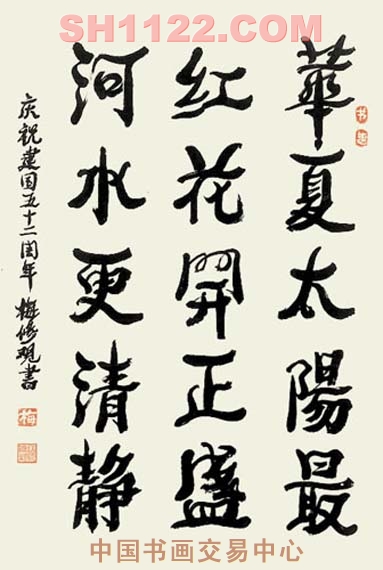 SH1122.COM
華夏太陽最
红花開正盛
河水更清静
庆祝建国五十二周年 梅修观書
梅
中国书画交易中心